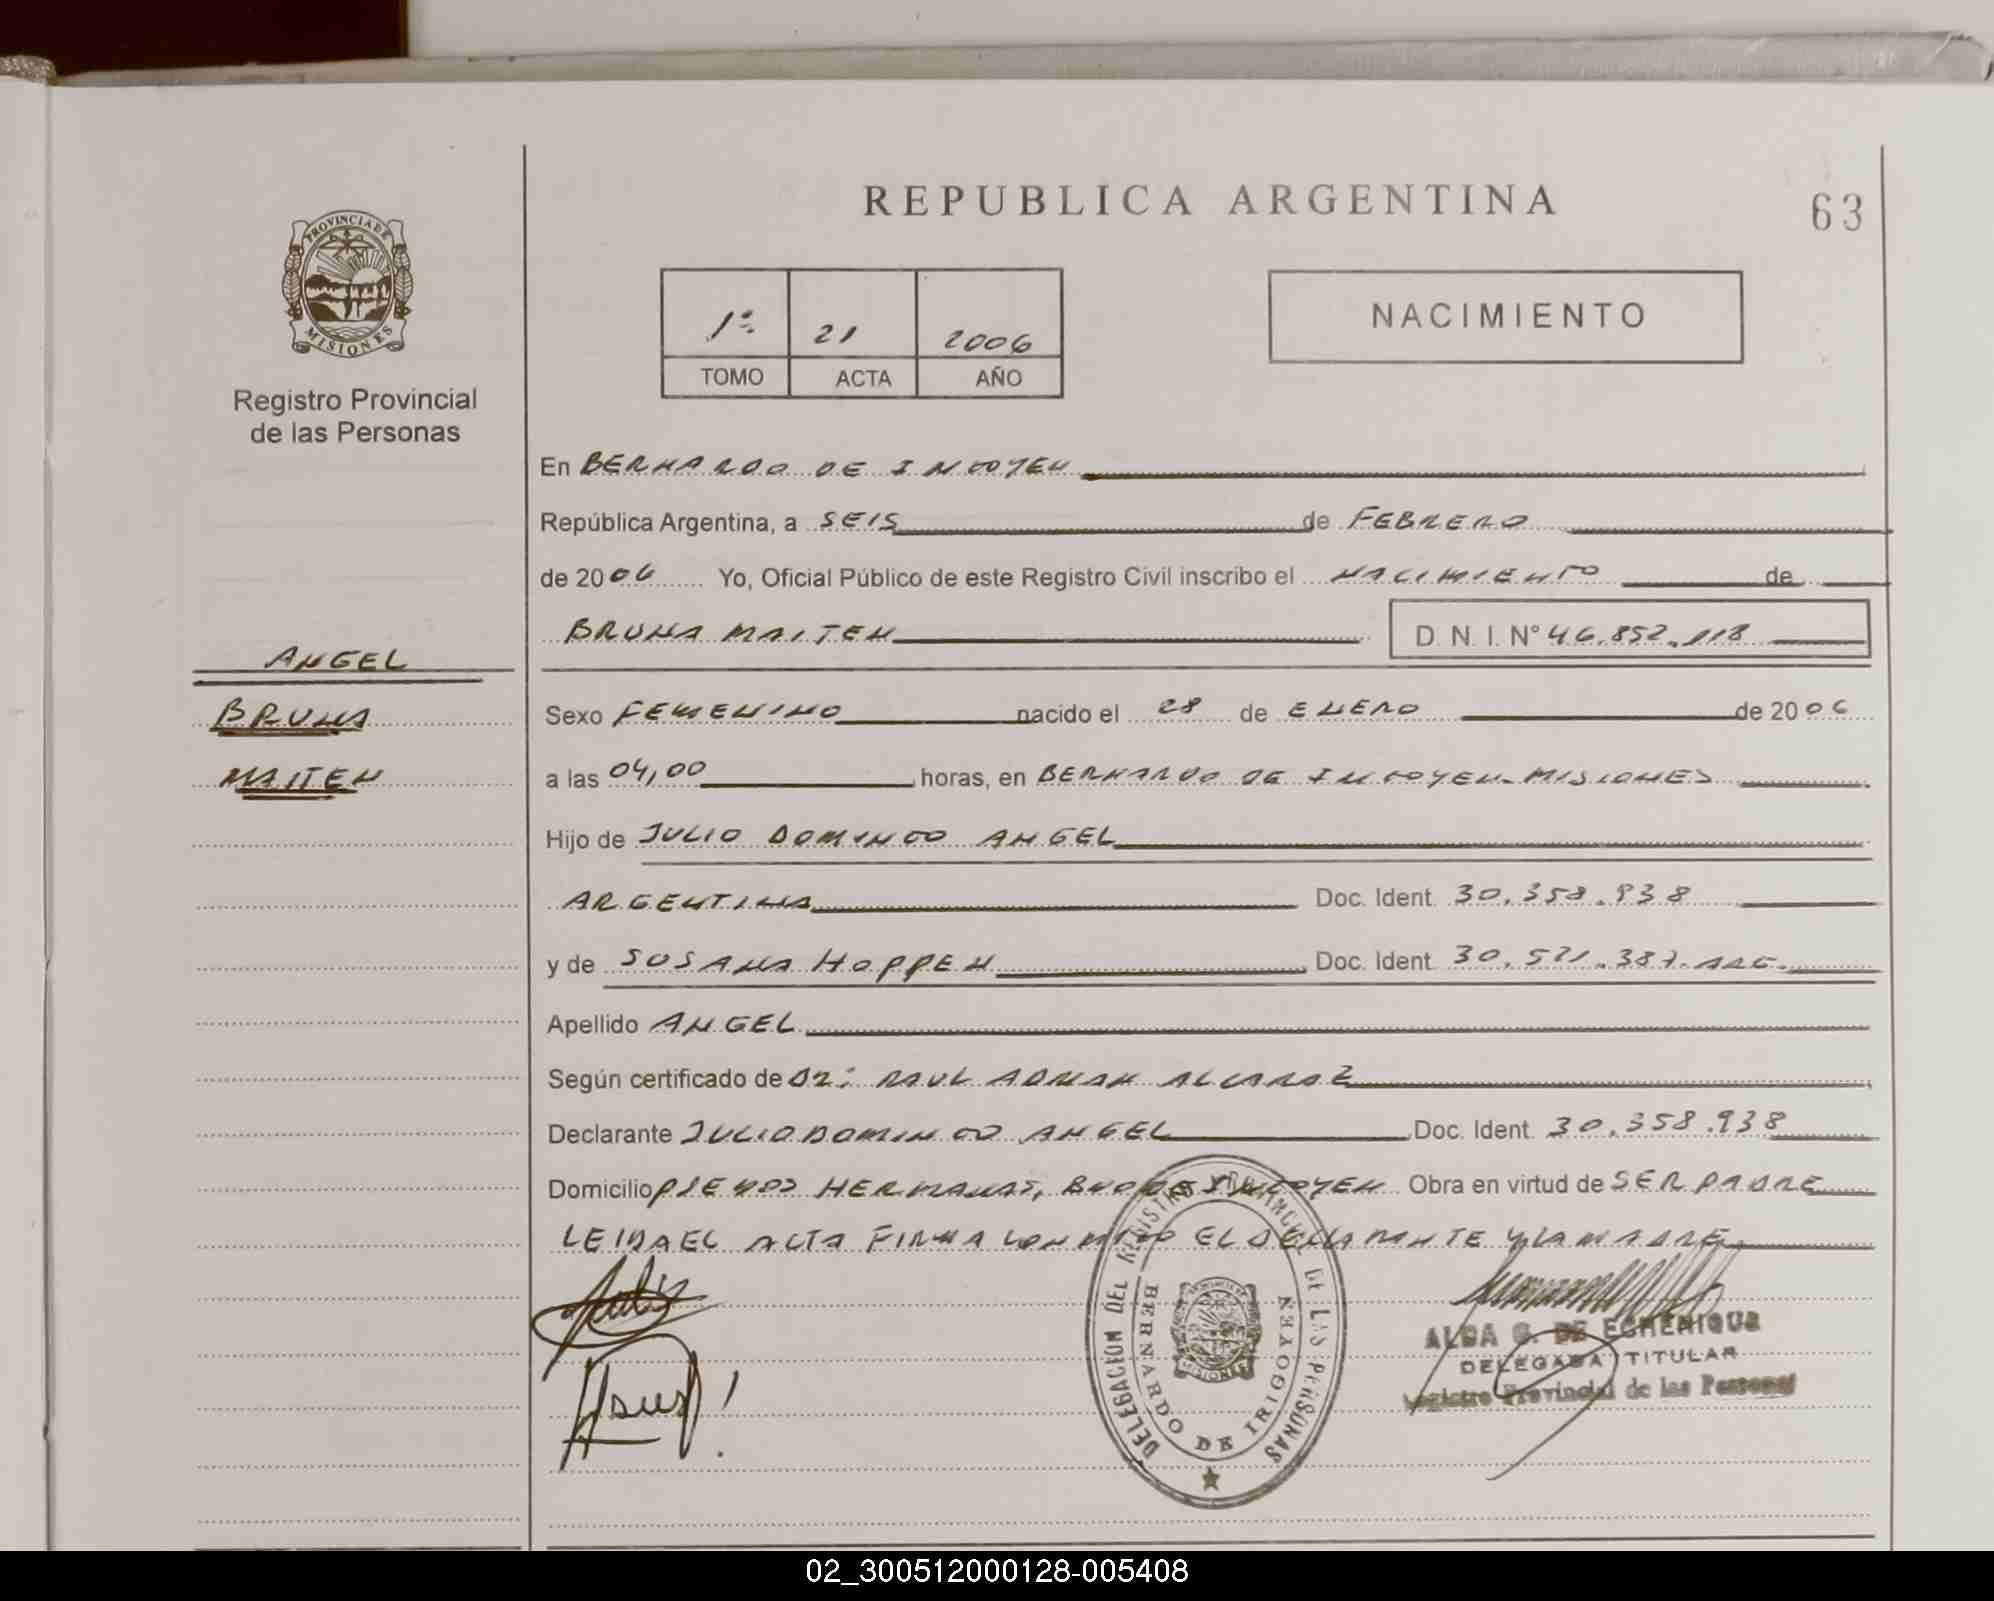 REPUBLICA ARGENTINA
63
PROVINCIA DE MISIONES
Registro Provincial
de las Personas
1º 21 2006
TOMO ACTA AÑO
NACIMIENTO
En BERNARDO DE IRIGOYEN
República Argentina, a SEIS de FEBRERO
de 2006 Yo, Oficial Público de este Registro Civil inscribo el NACIMIENTO de
BRUNA MAITEN D. N. I. N° 46.852.118
ANGEL
BRUNA
MAITEN
Sexo FEMENINO nacido el 28 de ENERO de 2006
a las 04,00 horas, en BERNARDO DE IRIGOYEN-MISIONES
Hijo de JULIO DOMINGO ANGEL
ARGENTINA Doc. Ident. 30.358.938
y de SUSANA HOPPEN Doc. Ident. 30.521.387.ARG.
Apellido ANGEL
Según certificado de DR: RAUL ADRIAN ALCARAZ
Declarante JULIO DOMINGO ANGEL Doc. Ident. 30.358.938
Domicilio HERMANAS, BDO DE IRIGOYEN Obra en virtud de SER PADRE
LEIDA EL ACTA FIRMA CONMIGO EL DECLARANTE Y LA MADRE
DELEGACION DEL REGISTRO PROVINCIAL DE LAS PERSONAS
BERNARDO DE IRIGOYEN
MISIONES
ALBA G. DE ECHENIQUE
DELEGADA TITULAR
Registro Provincial de las Personas
02_300512000128-005408